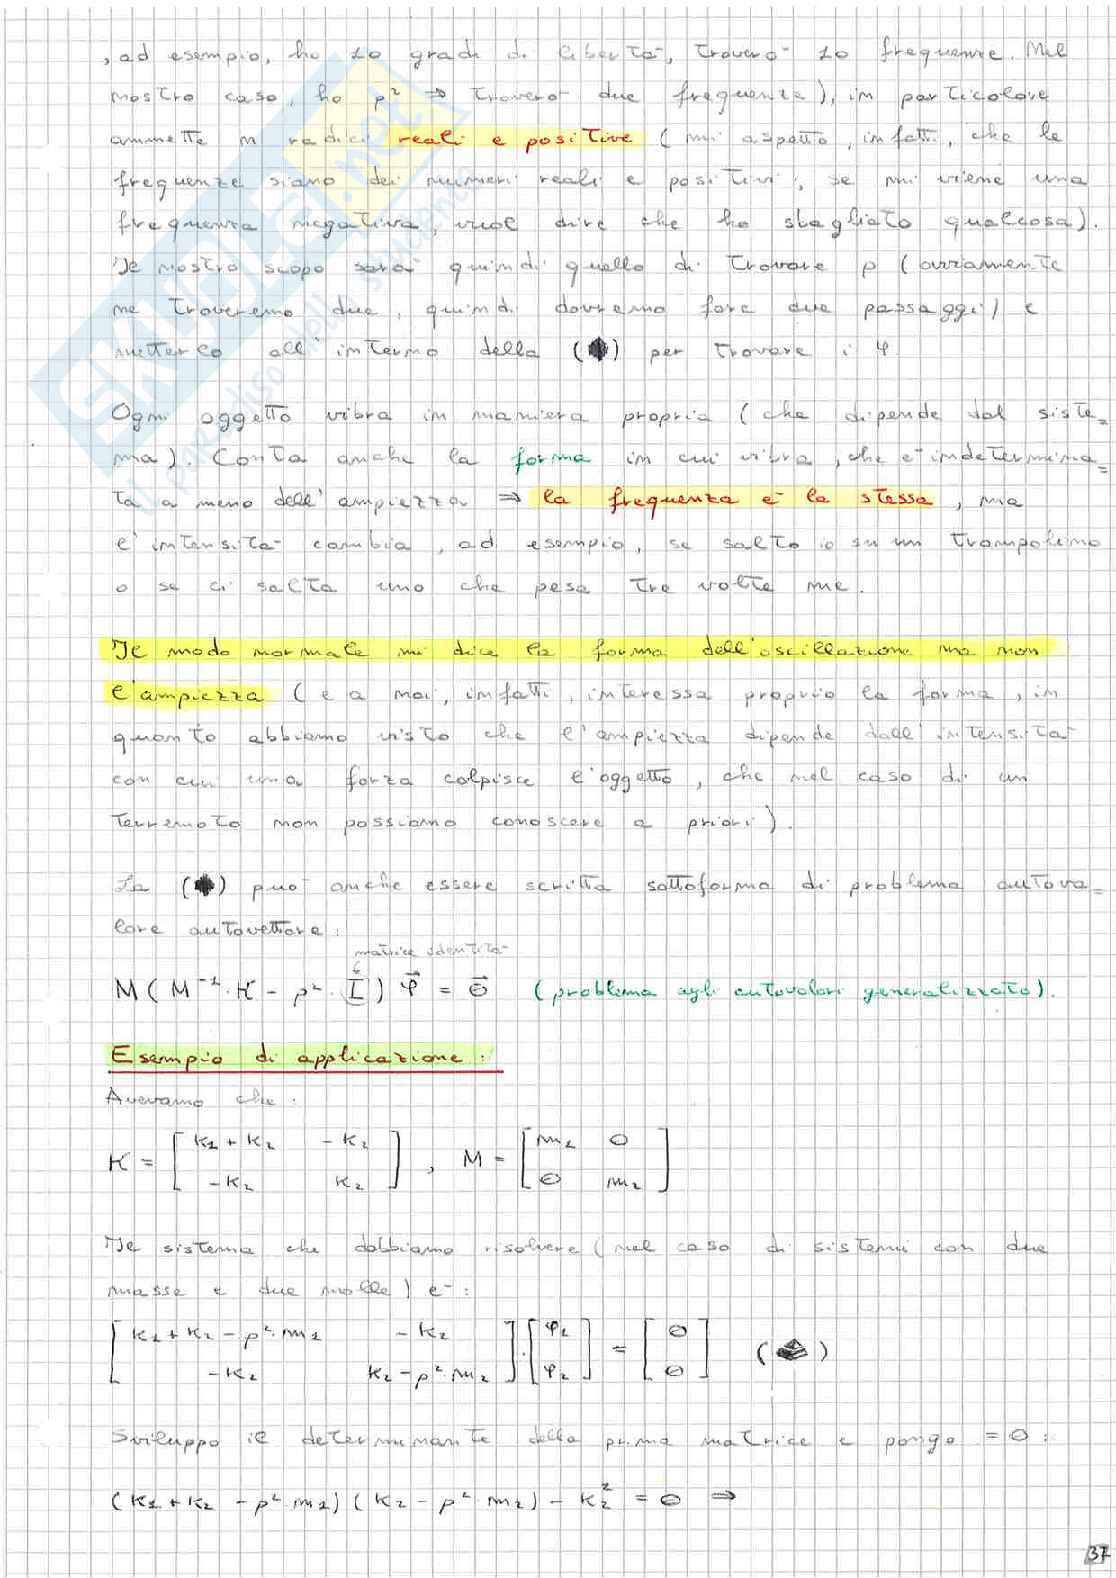 , ad esempio, ho 10 gradi di libertà, troverò 10 frequenze. Nel
nostro caso, ho p² ⇒ troverò due frequenze), in particolare
ammette n radici reali e positive (mi aspetto, infatti, che le
frequenze siano dei numeri reali e positivi, se mi viene una
frequenza negativa, vuol dire che ho sbagliato qualcosa).
Il nostro scopo sarà quindi quello di trovare p (ovviamente
ne troveremo due, quindi dovremo fare due passaggi) e
metterlo all'interno della (♦) per trovare i φ
Ogni oggetto vibra in maniera propria (che dipende dal siste=
ma). Conta anche la forma in cui vibra, che è indetermina=
ta a meno dell'ampiezza ⇒ la frequenza è la stessa, ma
l'intensità cambia, ad esempio, se salto io su un trampolino
o se ci salta uno che pesa tre volte me.
Il modo normale mi dice la forma dell'oscillazione ma non
l'ampiezza (e a noi, infatti, interessa proprio la forma, in
quanto abbiamo visto che l'ampiezza dipende dall'intensità
con cui una forza colpisce l'oggetto, che nel caso di un
terremoto non possiamo conoscere a priori).
La (♦) può anche essere scritta sottoforma di problema autova=
lore autovettore:
matrice identità
M ( M⁻¹·K - p²·I ) φ⃗ = 0⃗ (problema agli autovalori generalizzato).
Esempio di applicazione:
Avevamo che:
K = [ k₁+k₂ -k₂ ; -k₂ k₂ ] , M = [ m₁ 0 ; 0 m₂ ]
Il sistema che dobbiamo risolvere (nel caso di sistemi con due
masse e due molle) è:
[ k₁+k₂-p²·m₁ -k₂ ; -k₂ k₂-p²·m₂ ] · [ φ₁ ; φ₂ ] = [ 0 ; 0 ]
Sviluppo il determinante della prima matrice e pongo = 0:
(k₁+k₂ - p²·m₁) (k₂ - p²·m₂) - k₂² = 0 ⇒
37
skuola.net
il paradiso dello studente